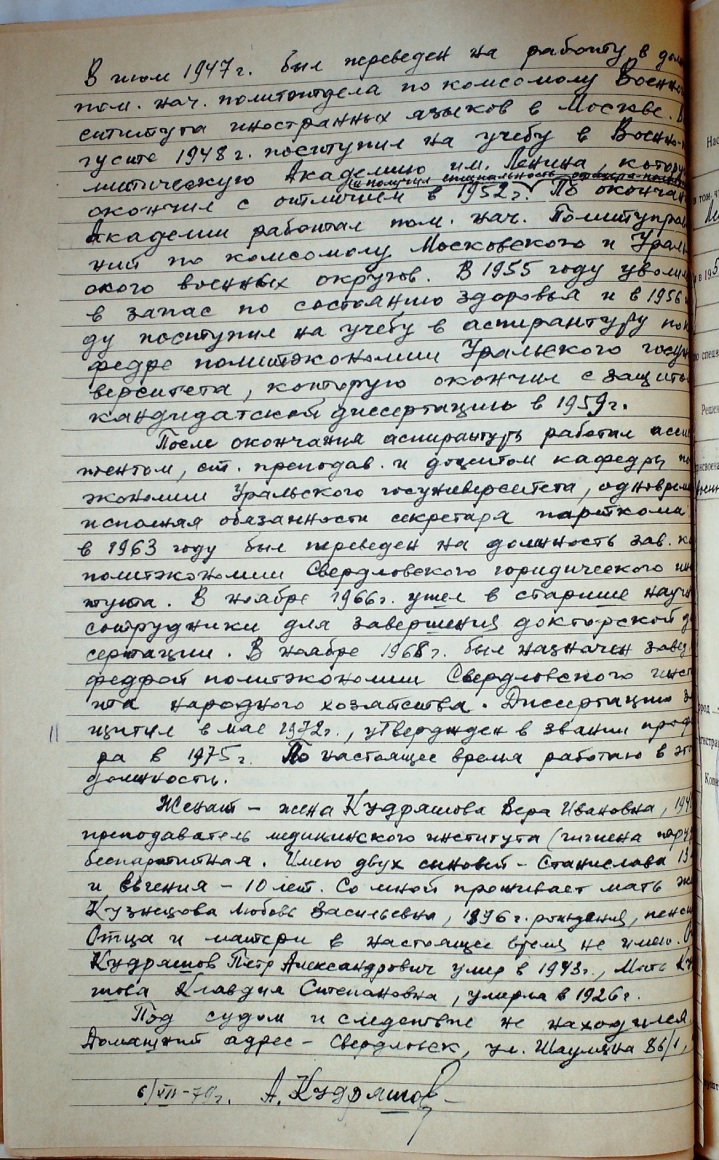 В июле 1947г. был переведен на работу в долж
пом. нач. политотдела по комсомолу Военно
ститута иностранных языков в Москве. В
густе 1948г. поступил на учебу в Военно-п
литическую Академию им. Ленина, котору
и получил специальность
окончил с отличием в 1952г. По окончан
Академии работал пом. нач. Политуправ
ний по комсомолу Московского и Ураль
ского военных округов. В 1955 году уволил
в запас по состоянию здоровья и в 1956
ду поступил на учебу в аспирантуру по к
федре политэкономии Уральского госун
верситета, которую окончил с защито
кандидатской диссертацию в 1959г.
После окончания аспирантуры работал асси
тентом, ст. преподав. и доцентом кафедры по
экономии Уральского госуниверситета, одноврем
исполняя обязанности секретаря парткома.
в 1963 году был переведен на должность зав. ка
политэкономии Свердловского юридического ин
тута. В ноябре 1966г. ушел в старшие науч
сотрудники для завершения докторской д
сертации. В ноябре 1968г. был назначен завед
федрой политэкономии Свердловского инст
та народного хозяйства. Диссертацию з
щитил в мае 1972г., утвержден в звании проф
ра в 1975г. По настоящее время работаю в это
должности.
Женат – жена Кудряшова Вера Ивановна, 194
преподаватель медицинского института (гигиена
беспартийная. Имею двух сыновей – Станислава 13
и Евгения – 10 лет. Со мной проживает мать же
Кузнецова Любовь Васильевна, 1896г. рождения, пенси
Отца и матери в настоящее время не имею. О
Кудряшов Петр Александрович умер в 1943г., Мать Ку
шова Клавдия Степановна, умерла в 1926г.
Под судом и следствие не находился
Домашний адрес – Свердловск, ул. Шаумяна 86/1,
6/VII-79г. А. Кудряшов
Нас
в том, ч
в 195
по специ
Решен
присвоена
город
Регистрац